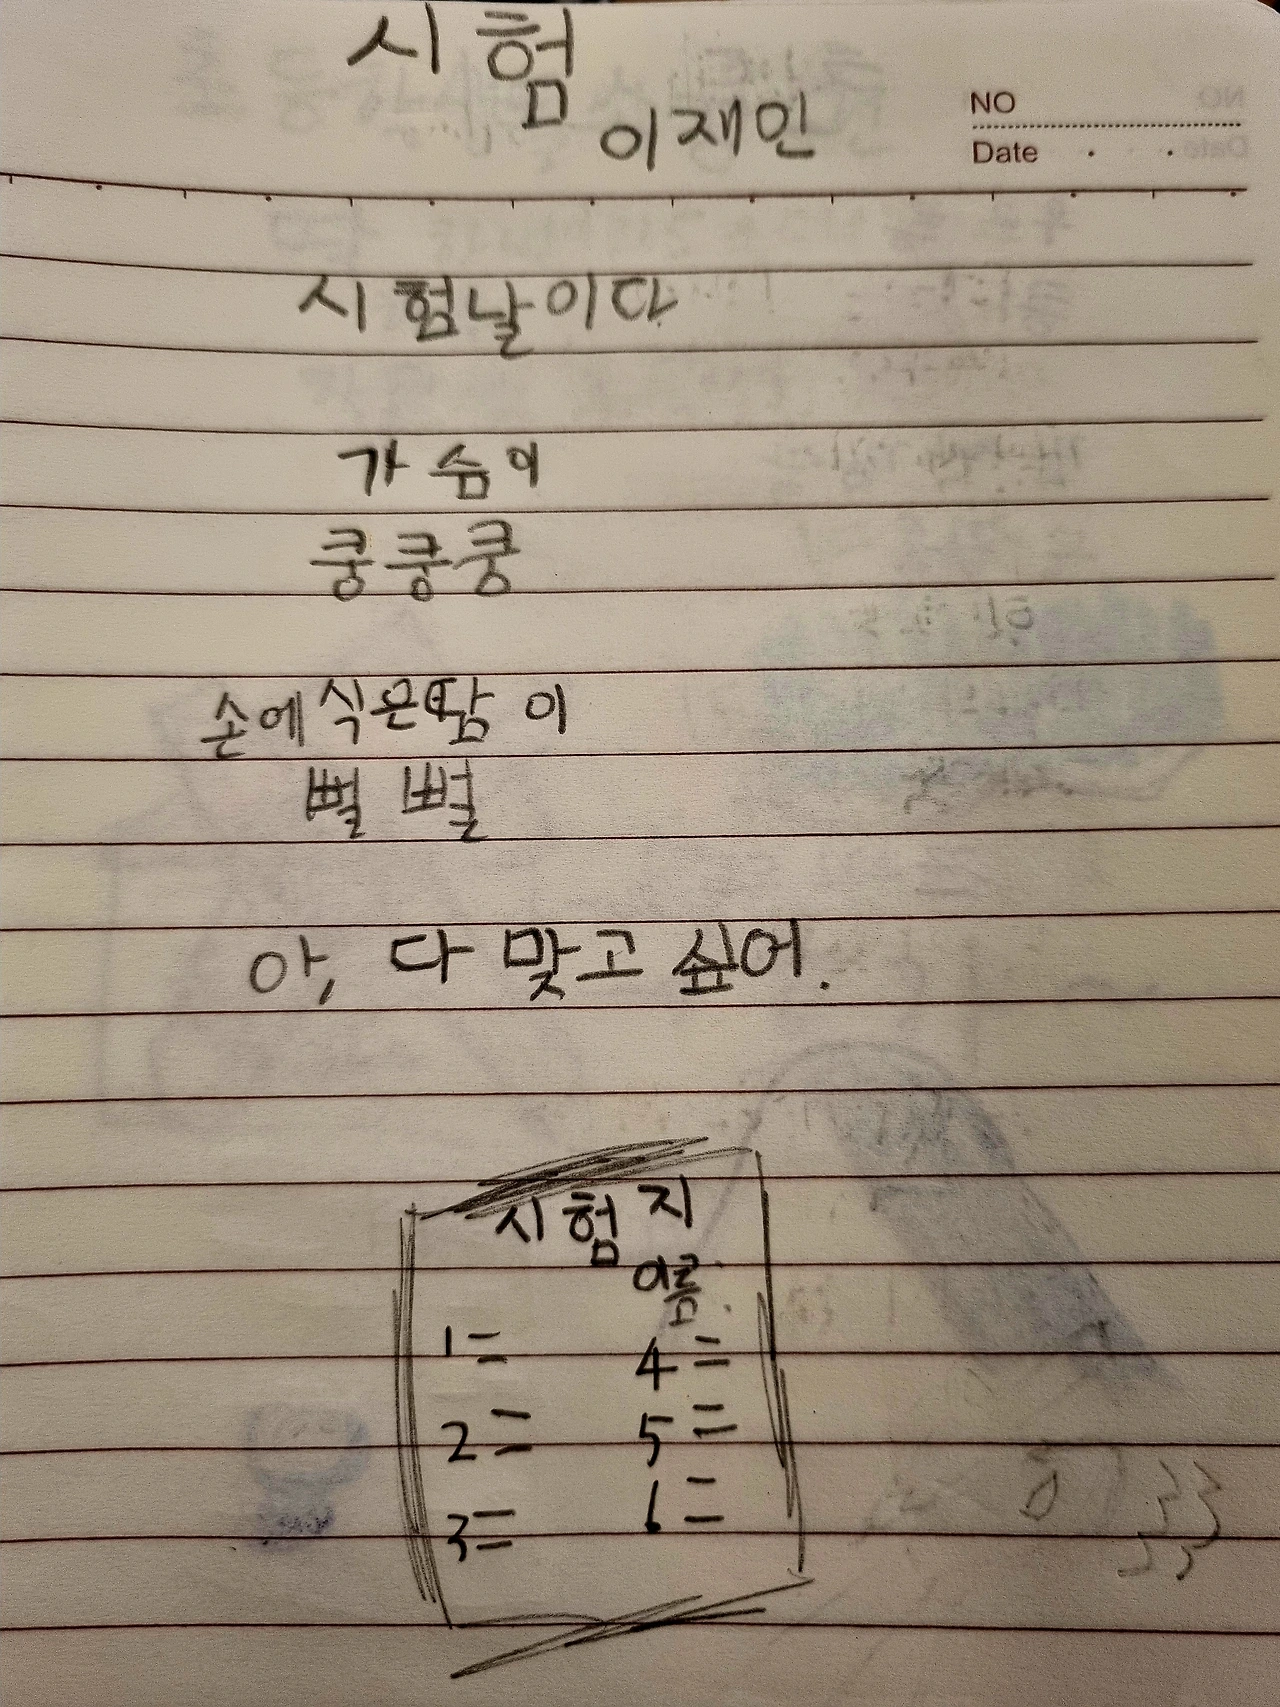 시험
이재인
NO
Date . .
시험날이다
가슴이
쿵쿵쿵
손에 식은땀이
뻘뻘
아, 다 맞고 싶어.
시험지
이름:
1= 4=
2= 5=
3= 6=